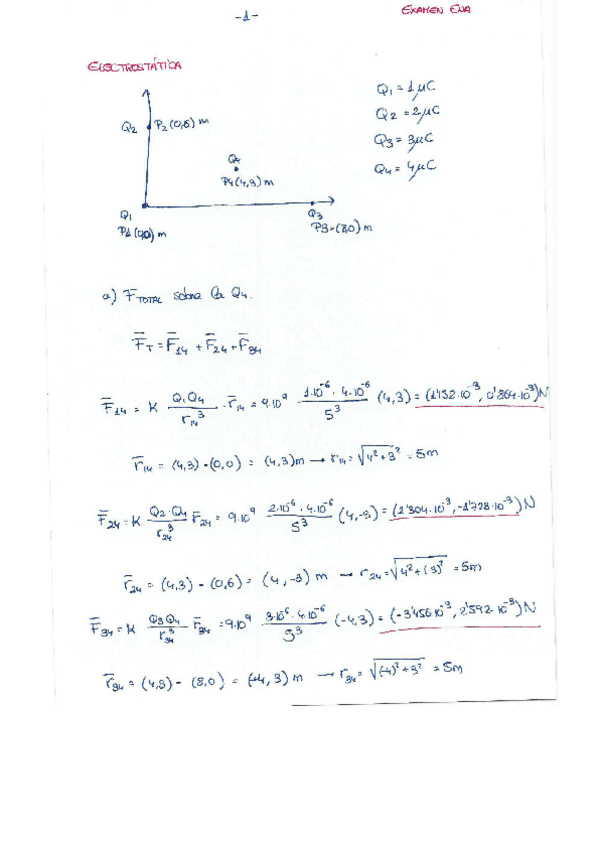 -1-
EXAMEN ENA
ELECTROSTÁTICA
Q1 = 1μC
Q2 = 2μC
Q3 = 3μC
Q4 = 4μC
Q2 P2 (0,6) m
Q4
P4 (4,3) m
Q1
P1 (0,0) m
Q3
P3=(8,0) m
a) F TOTAL sobre la Q4.
F̄T = F̄14 + F̄24 + F̄34
F̄14 = K Q1Q4/r14³ · r̄14 = 9·10⁹ 1·10⁻⁶ · 4·10⁻⁶/5³ (4,3) = (1'152·10⁻³, 0'864·10⁻³)N
r̄14 = (4,3)-(0,0) = (4,3)m → r14 = √4²+3² = 5m
F̄24 = K Q2·Q4/r24³ r̄24 = 9·10⁹ 2·10⁻⁶ · 4·10⁻⁶/5³ (4,-3) = (2'304·10⁻³, -1'728·10⁻³)N
r̄24 = (4,3) - (0,6) = (4,-3) m → r24 = √4²+(3)² = 5m
F̄34 = K Q3Q4/r34³ r̄34 = 9·10⁹ 3·10⁻⁶ · 4·10⁻⁶/5³ (-4,3) = (-3'456·10⁻³, 2'592·10⁻³)N
r̄34 = (4,3) - (8,0) = (-4,3) m → r34 = √(-4)²+3² = 5m